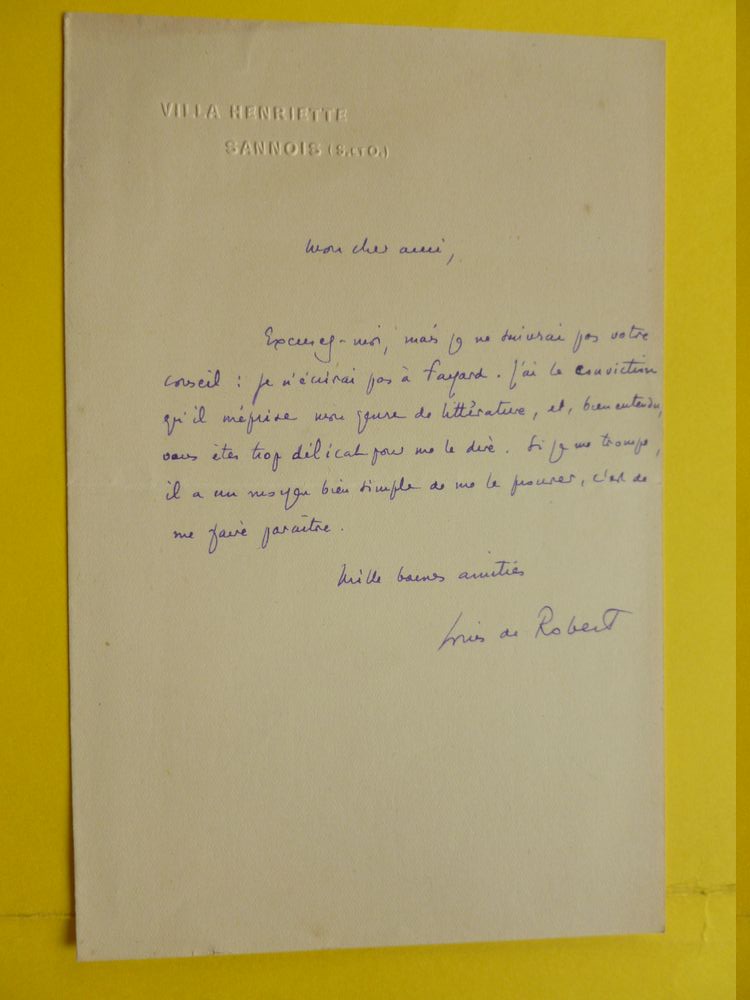 VILLA HENRIETTE
SANNOIS (S. ET O.)
Mon cher ami,
Excusez-moi, mais je ne suivrai pas votre
conseil : je n'écrirai pas à Fayard. J'ai la conviction
qu'il méprise mon genre de littérature, et, bien entendu,
vous êtes trop délicat pour me le dire. Si je me trompe,
il a un moyen bien simple de me le prouver, c'est de
me faire paraître.
Mille bonnes amitiés
Louis de Robert